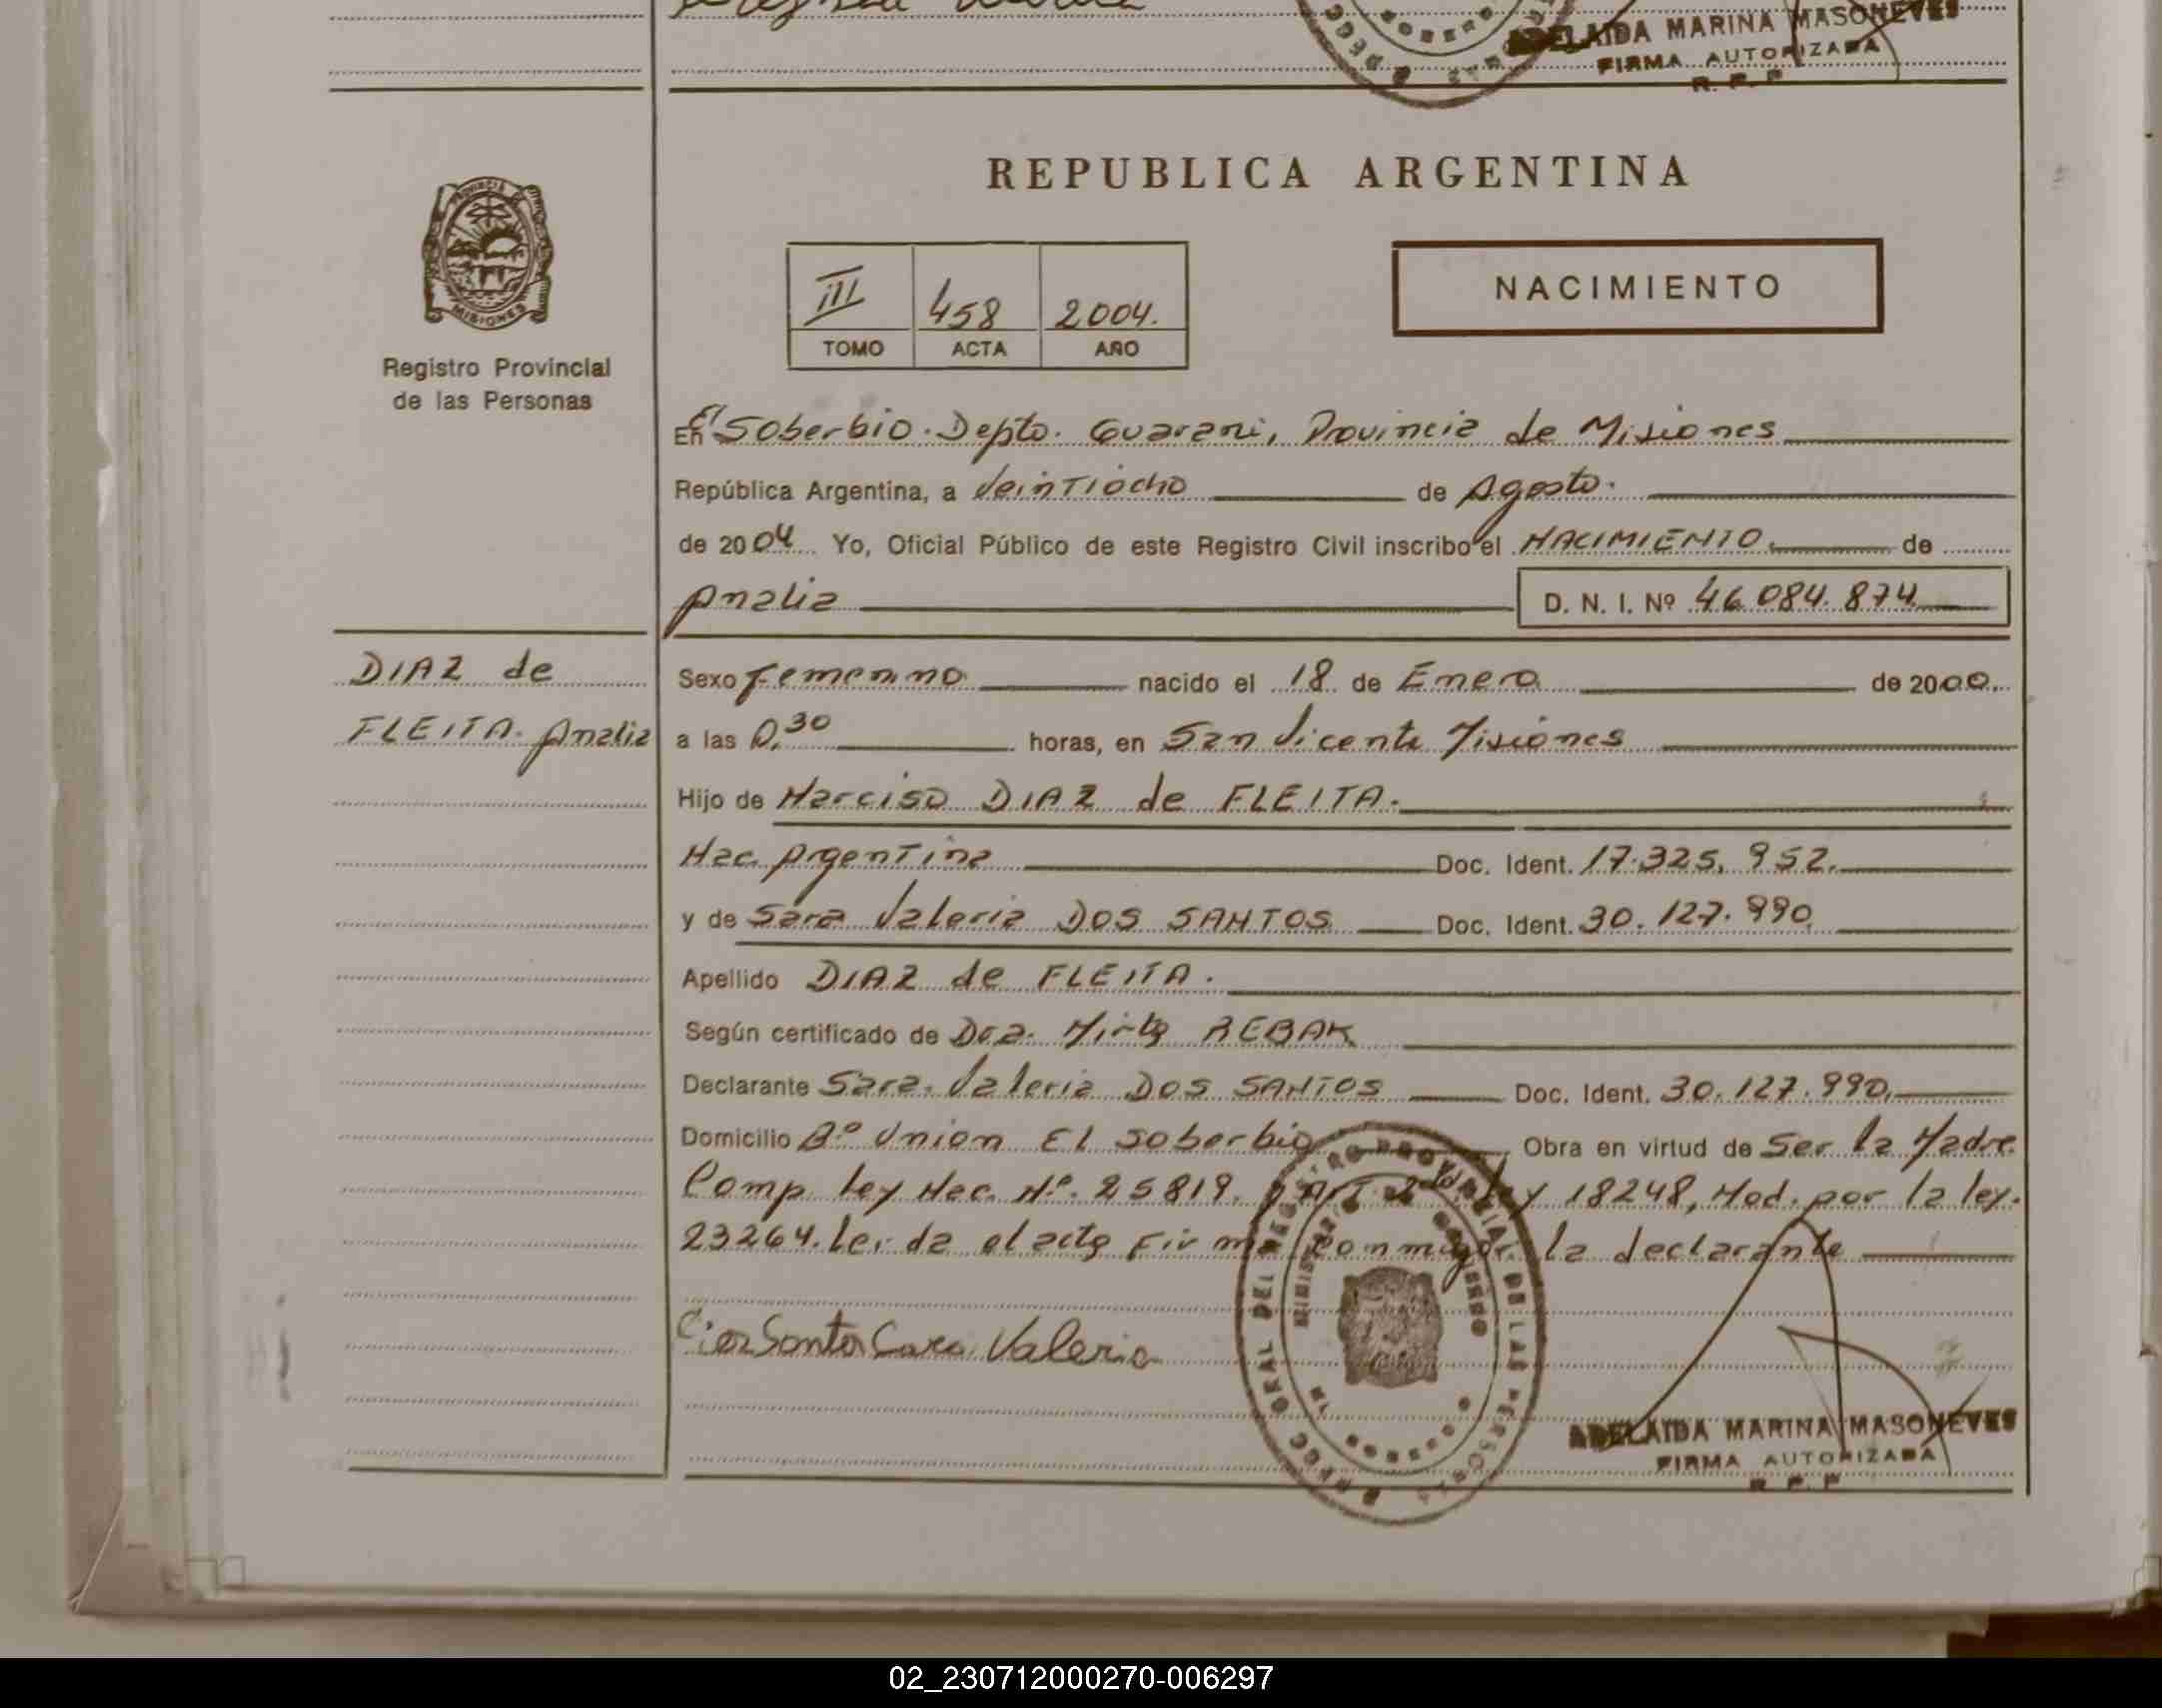 ADELAIDA MARINA MASONEVES
FIRMA AUTORIZADA
R. P. P
PROVINCIA
MISIONES
Registro Provincial
de las Personas
REPUBLICA ARGENTINA
III 458 2004.
TOMO ACTA AÑO
NACIMIENTO
En El Soberbio. Depto. Guarani, Provincia de Misiones
República Argentina, a Veintiocho de Agosto.
de 2004 Yo, Oficial Público de este Registro Civil inscribo el NACIMIENTO de
Analia D. N. I. Nº 46.084.874
DIAZ de
FLEITA. Analia
Sexo Femenino nacido el 18 de Enero de 2000.
a las 0,30 horas, en San Vicente Misiones
Hijo de Narciso DIAZ de FLEITA.
Nac. Argentina Doc. Ident. 17.325.952.
y de Sara Valeria DOS SANTOS Doc. Ident. 30.127.990
Apellido DIAZ de FLEITA.
Según certificado de Dra. Mirta REBAK
Declarante Sara Valeria DOS SANTOS Doc. Ident. 30.127.990,
Domicilio Bº Union El Soberbio Obra en virtud de Ser la Madre
Comp. Ley Nac. Nº. 25819. y Art 2 Ley 18248, Mod. por la ley.
23264. Leida el acta Firma conmigo la declarante
Santos Sara Valeria
REGISTRO PROVINCIAL DE LAS PERSONAS
ADELAIDA MARINA MASONEVES
FIRMA AUTORIZADA
R. P. P
02_230712000270-006297